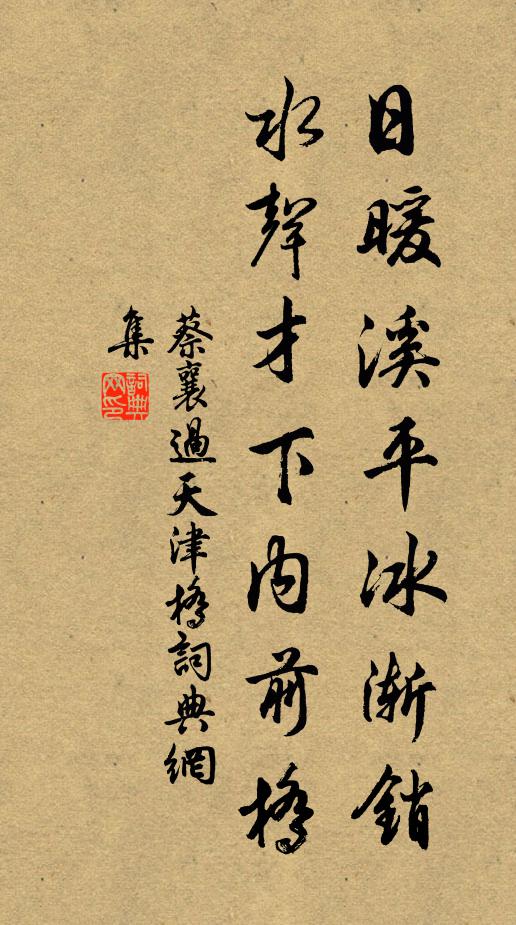 日暖溪平冰漸銷
水聲才下內前橋
蔡襄過天津橋詞典網
集
詞典
網印